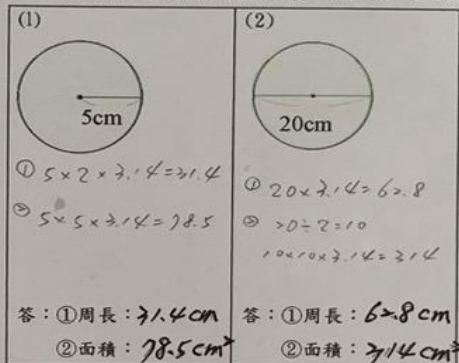 (1)
5cm
① 5×2×3.14=31.4
② 5×5×3.14=78.5
答：①周長：31.4cm
②面積：78.5cm²
(2)
20cm
① 20×3.14=62.8
② 20÷2=10
10×10×3.14=314
答：①周長：62.8cm
②面積：314cm²